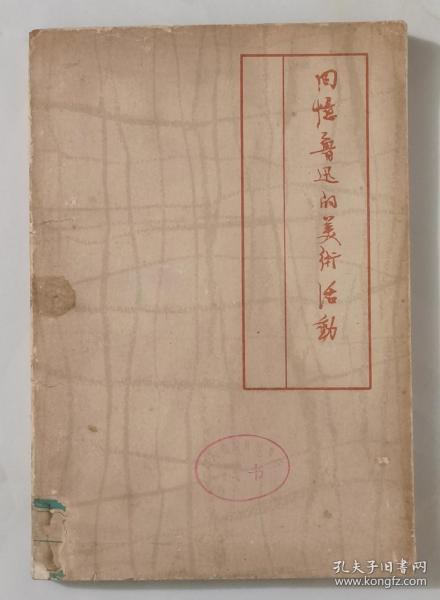 回憶魯迅的美術活動
书
孔夫子旧书网
www.kongfz.com